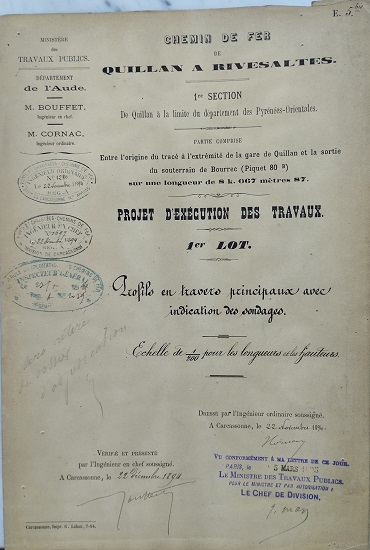 E. 5.bis
MINISTÈRE
des
TRAVAUX PUBLICS.
DÉPARTEMENT
de l'Aude.
M. BOUFFET,
Ingénieur en chef.
M. CORNAC,
Ingénieur ordinaire.
CHEMIN DE FER
DE
QUILLAN A RIVESALTES.
1re SECTION
De Quillan à la limite du département des Pyrénées-Orientales.
PARTIE COMPRISE
Entre l'origine du tracé à l'extrémité de la gare de Quillan et la sortie
du souterrain de Bourrec (Piquet 80 )
sur une longueur de 8 k. 667 mètres 87.
PROJET D'EXÉCUTION DES TRAVAUX.
1er LOT.
Profils en travers principaux avec
indication des sondages.
Echelle de 1/200 pour les longueurs et les hauteurs.
INGÉNIEUR ORDINAIRE
INGÉNIEUR EN CHEF
INSPECTEUR GÉNÉRAL
Dressé par l'Ingénieur ordinaire soussigné.
A Carcassonne, le 22 Décembre 1894.
Cornac
VÉRIFIÉ ET PRÉSENTÉ
par l'Ingénieur en chef soussigné.
A Carcassonne, le 22 Décembre 1894
Bouffet
VU CONFORMÉMENT A MA LETTRE DE CE JOUR.
PARIS, le 5 MARS
LE MINISTRE DES TRAVAUX PUBLICS,
POUR LE MINISTRE ET PAR AUTORISATION :
LE CHEF DE DIVISION,
Carcassonne, Imp. G. Labau, 7-94.